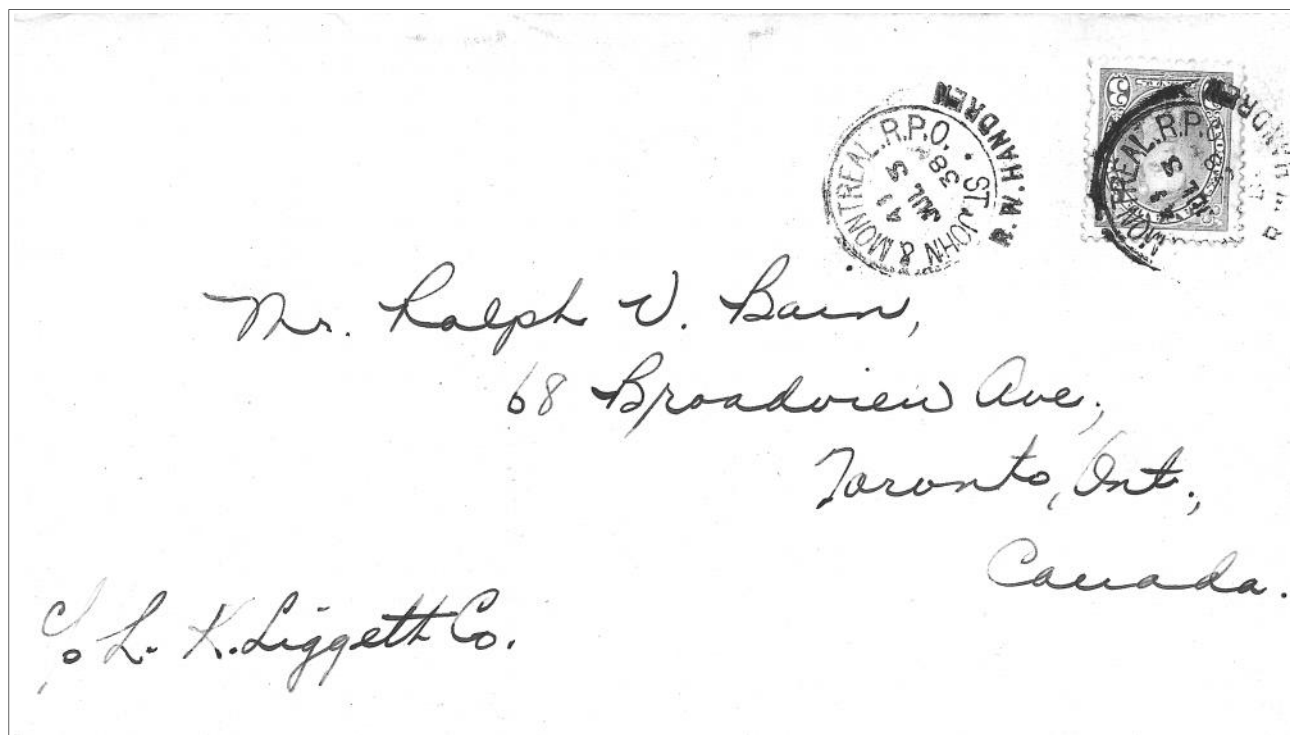 MONTREAL.R.P.O. • ST. JOHN &
41
JUL 5
38
R.W. HANDREN
MONTREAL.R.P.O.
3
Mr. Ralph V. Bain,
68 Broadview Ave.,
Toronto, Ont.,
Canada.
c/o L. K. Liggett Co.